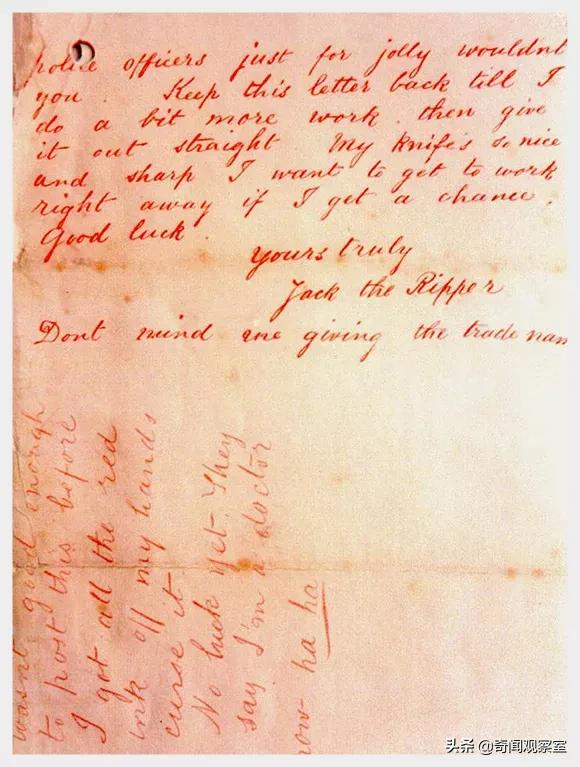 police officers just for jolly wouldnt
you. Keep this letter back till I
do a bit more work. then give
it out straight. My knife's so nice
and sharp I want to get to work
right away if I get a chance.
Good luck.
Yours truly
Jack the Ripper
Dont mind me giving the trade nam
wasnt good enough
to post this before
I got all the red
ink off my hands
curse it
No luck yet. They
say I'm a doctor
now ha ha
头条 @奇闻观察室